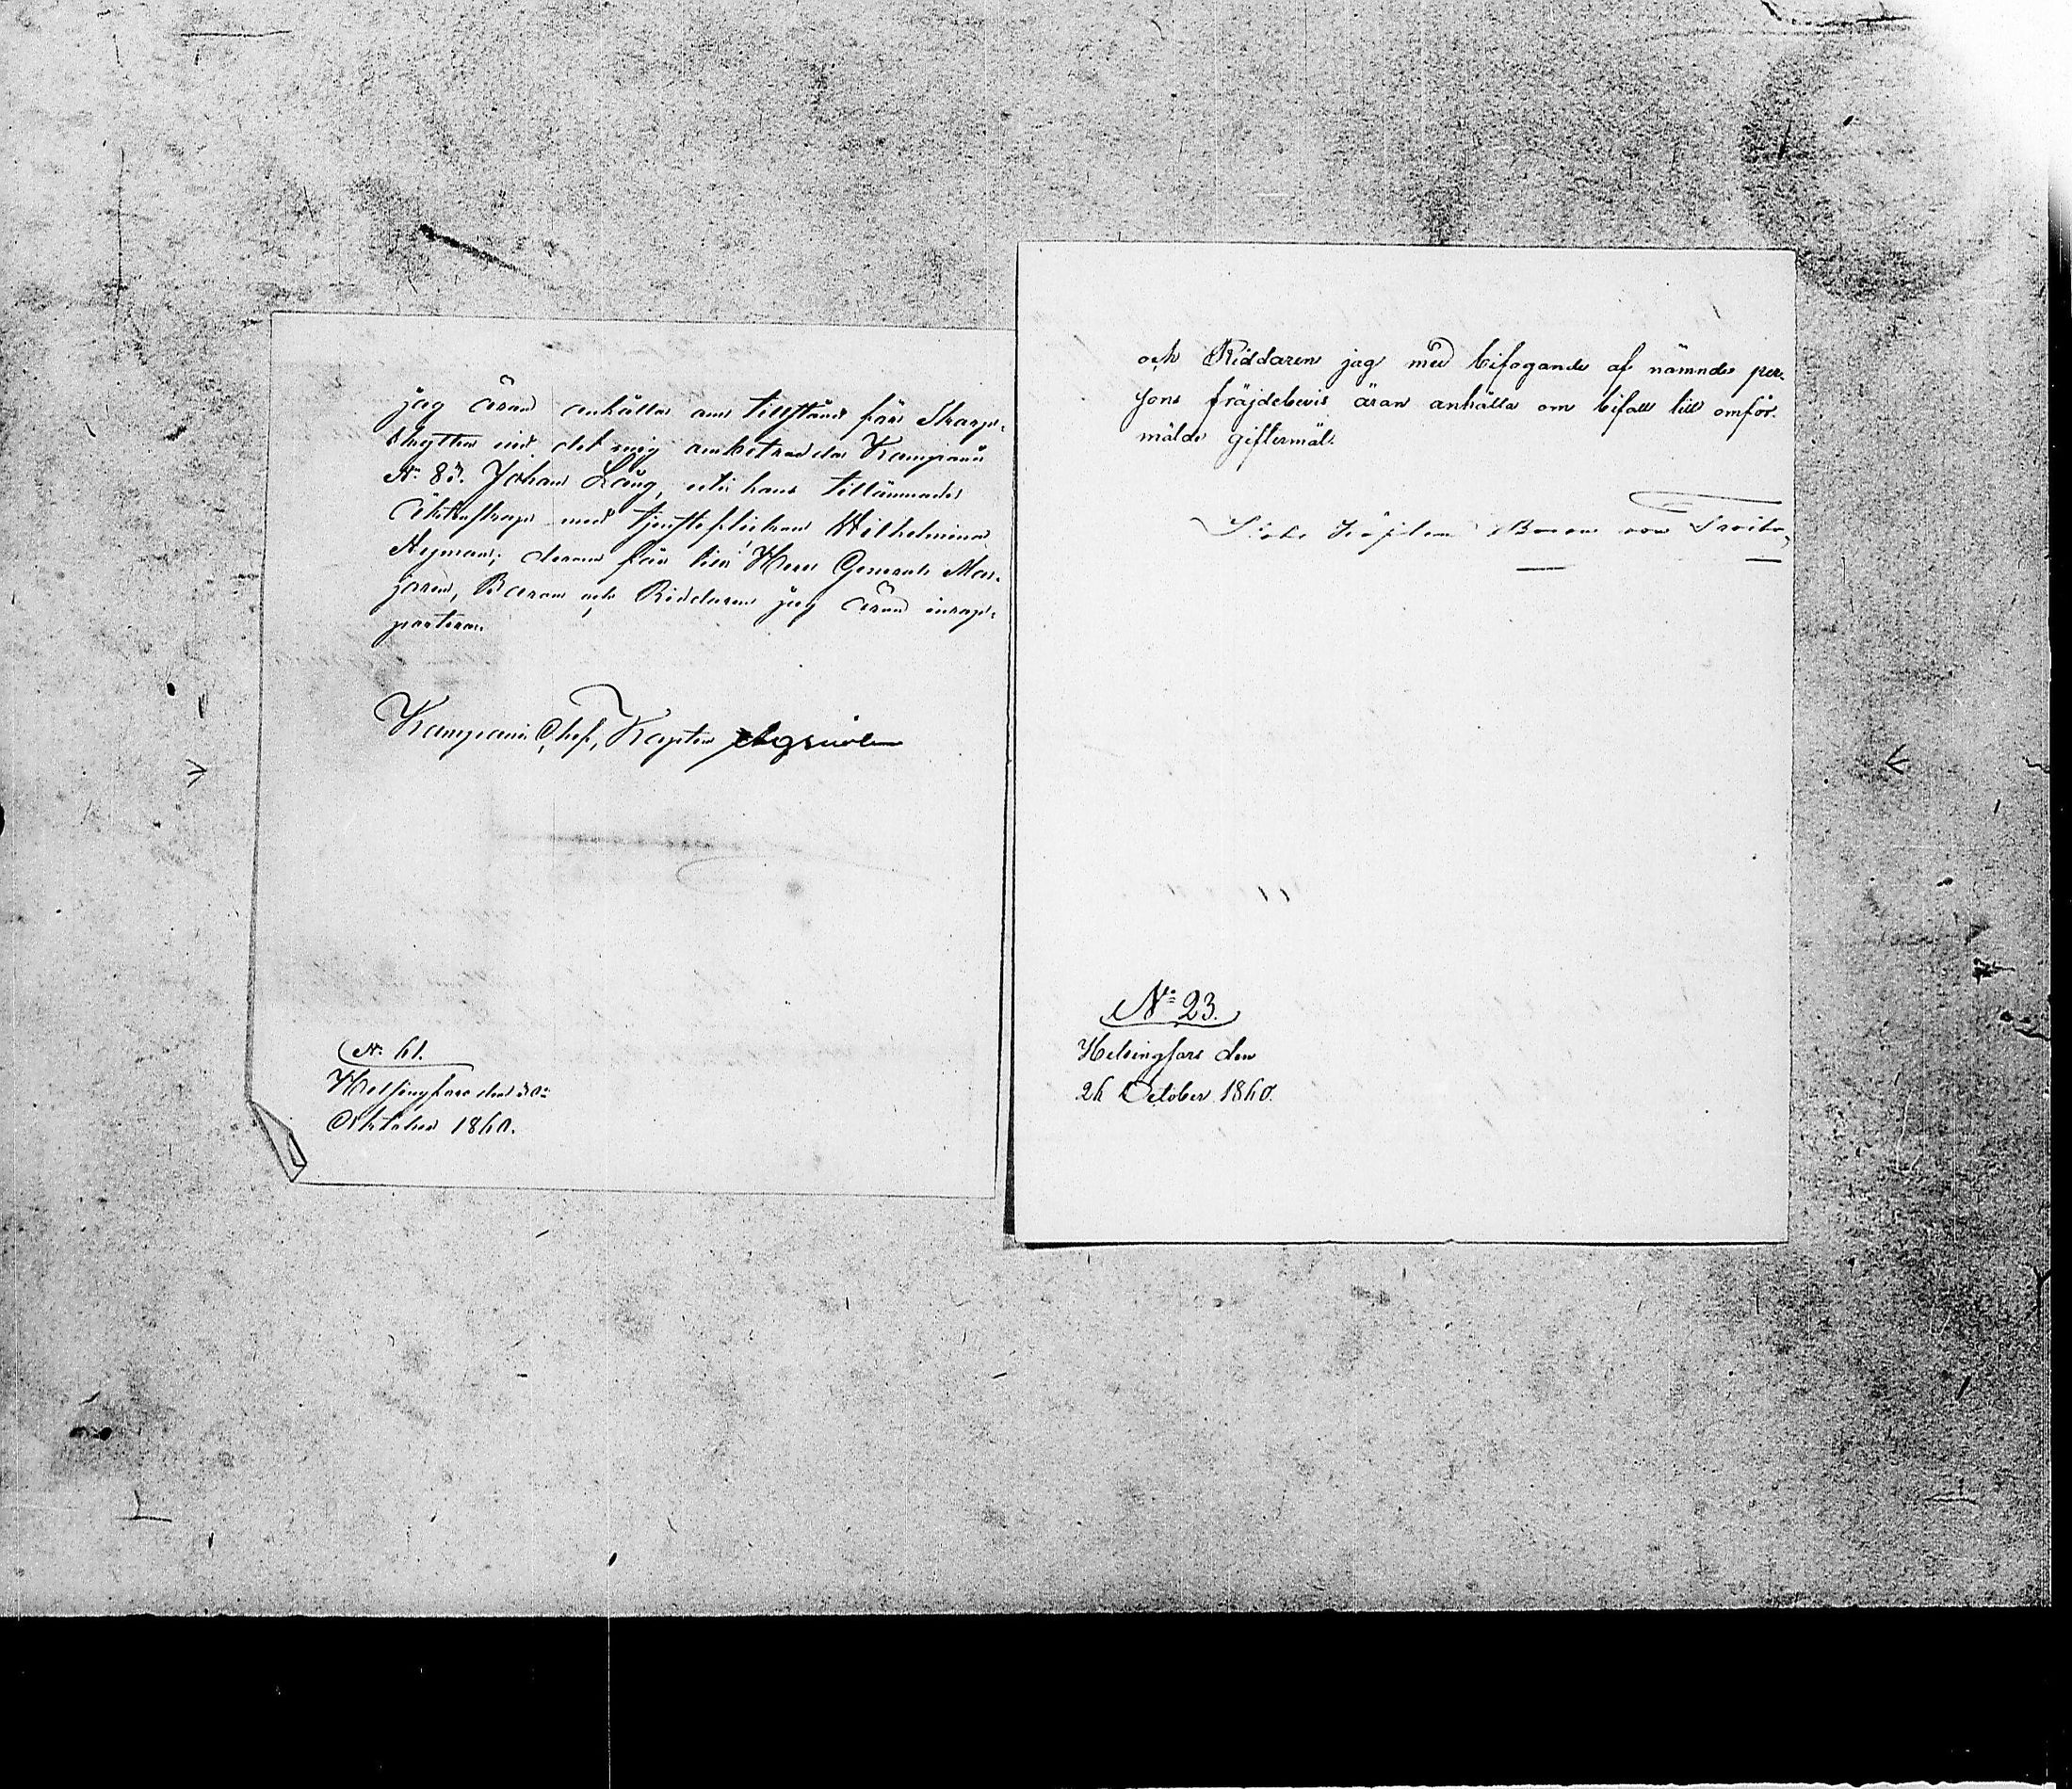 jag äran anhålla om tillstånd för Skarp-
skytten vid det mig anbetrodda Kompanie
No 87. Johan Lång, uti hans tillämnade
Äktenskap med tjensteflickan Wilhelmina
Nyman; derom för Herr General Ma-
joren, Baron och Riddaren jag äran inrap-
portera.
Kompanie Chef, Kapten
No 61.
Helsingfors den
Oktober 1860.
och Riddaren jag med bifogande af nämnde per-
sons fräjdebevis äran anhålla om bifall till omför-
mälde giftermål.
Baron von Troil
No 23.
Helsingfors den
26 October 1860.